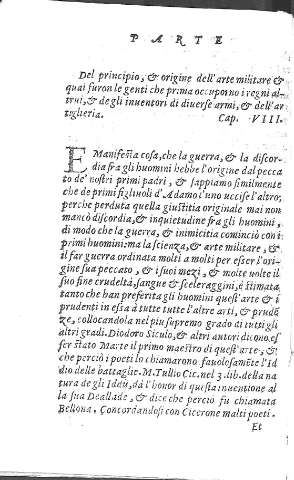 PARTE
Del principio, & origine dell'arte militare &
qual furon le genti che prima occuporno i regni al-
trui, & degli inuentori di diuerse armi, & dell'ar-
tiglieria. Cap. VIII.
E Manifesta cosa, che la guerra, & la discor-
dia fra gli huomini hebbe l'origine dal pecca
to de' nostri primi padri, & sappiamo similmente
che de primi figliuoli d'Adamo l'uno uccise l'altro,
perche perduta quella giustitia originale mai non
mancò discordia, & inquietudine fra gli huomini,
di modo che la guerra, & inimicitia cominciò con i
primi huomini: ma la scienza, & arte militare, &
il far guerra ordinata molti a molti per esser l'ori-
gine sua peccato, & i suoi mezi, & molte uolte il
suo fine crudeltà, sangue & sceleraggini, è stimata
tanto che han preferita gli huomini quest'arte & i
prudenti in essa à tutte tutte l'altre arti, & prudē
ze, collocandola nel piu supremo grado di tutti gli
altri gradi. Diodoro Siculo, & altri autori dicono, es
ser stato Marte il primo maestro di quest'arte, &
che perciò i poeti lo chiamarono fauolosamēte l'Id
dio delle battaglie. M. Tullio Cic. nel 3. lib. della na
tura degli Idei, dà l'honor di questa inuentione al
la sua Dea Pallade, & dice che perciò fu chiamata
Bellona. Concordandosi con Cicerone molti poeti.
Et